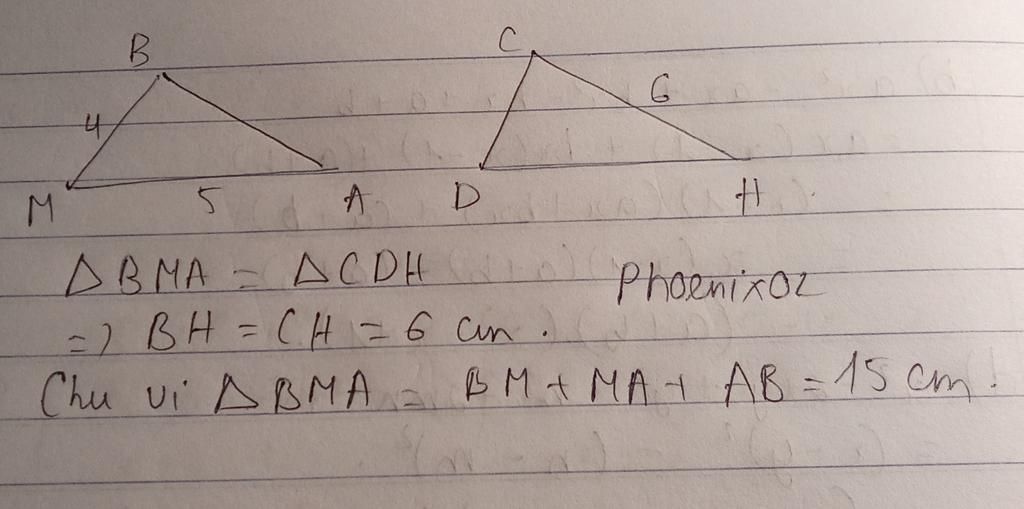 B
C
4
6
M
5
A
D
H
△BMA = △CDH
Phoenixoz
=) BH = CH = 6 cm.
Chu vi △BMA = BM + MA + AB = 15 cm.